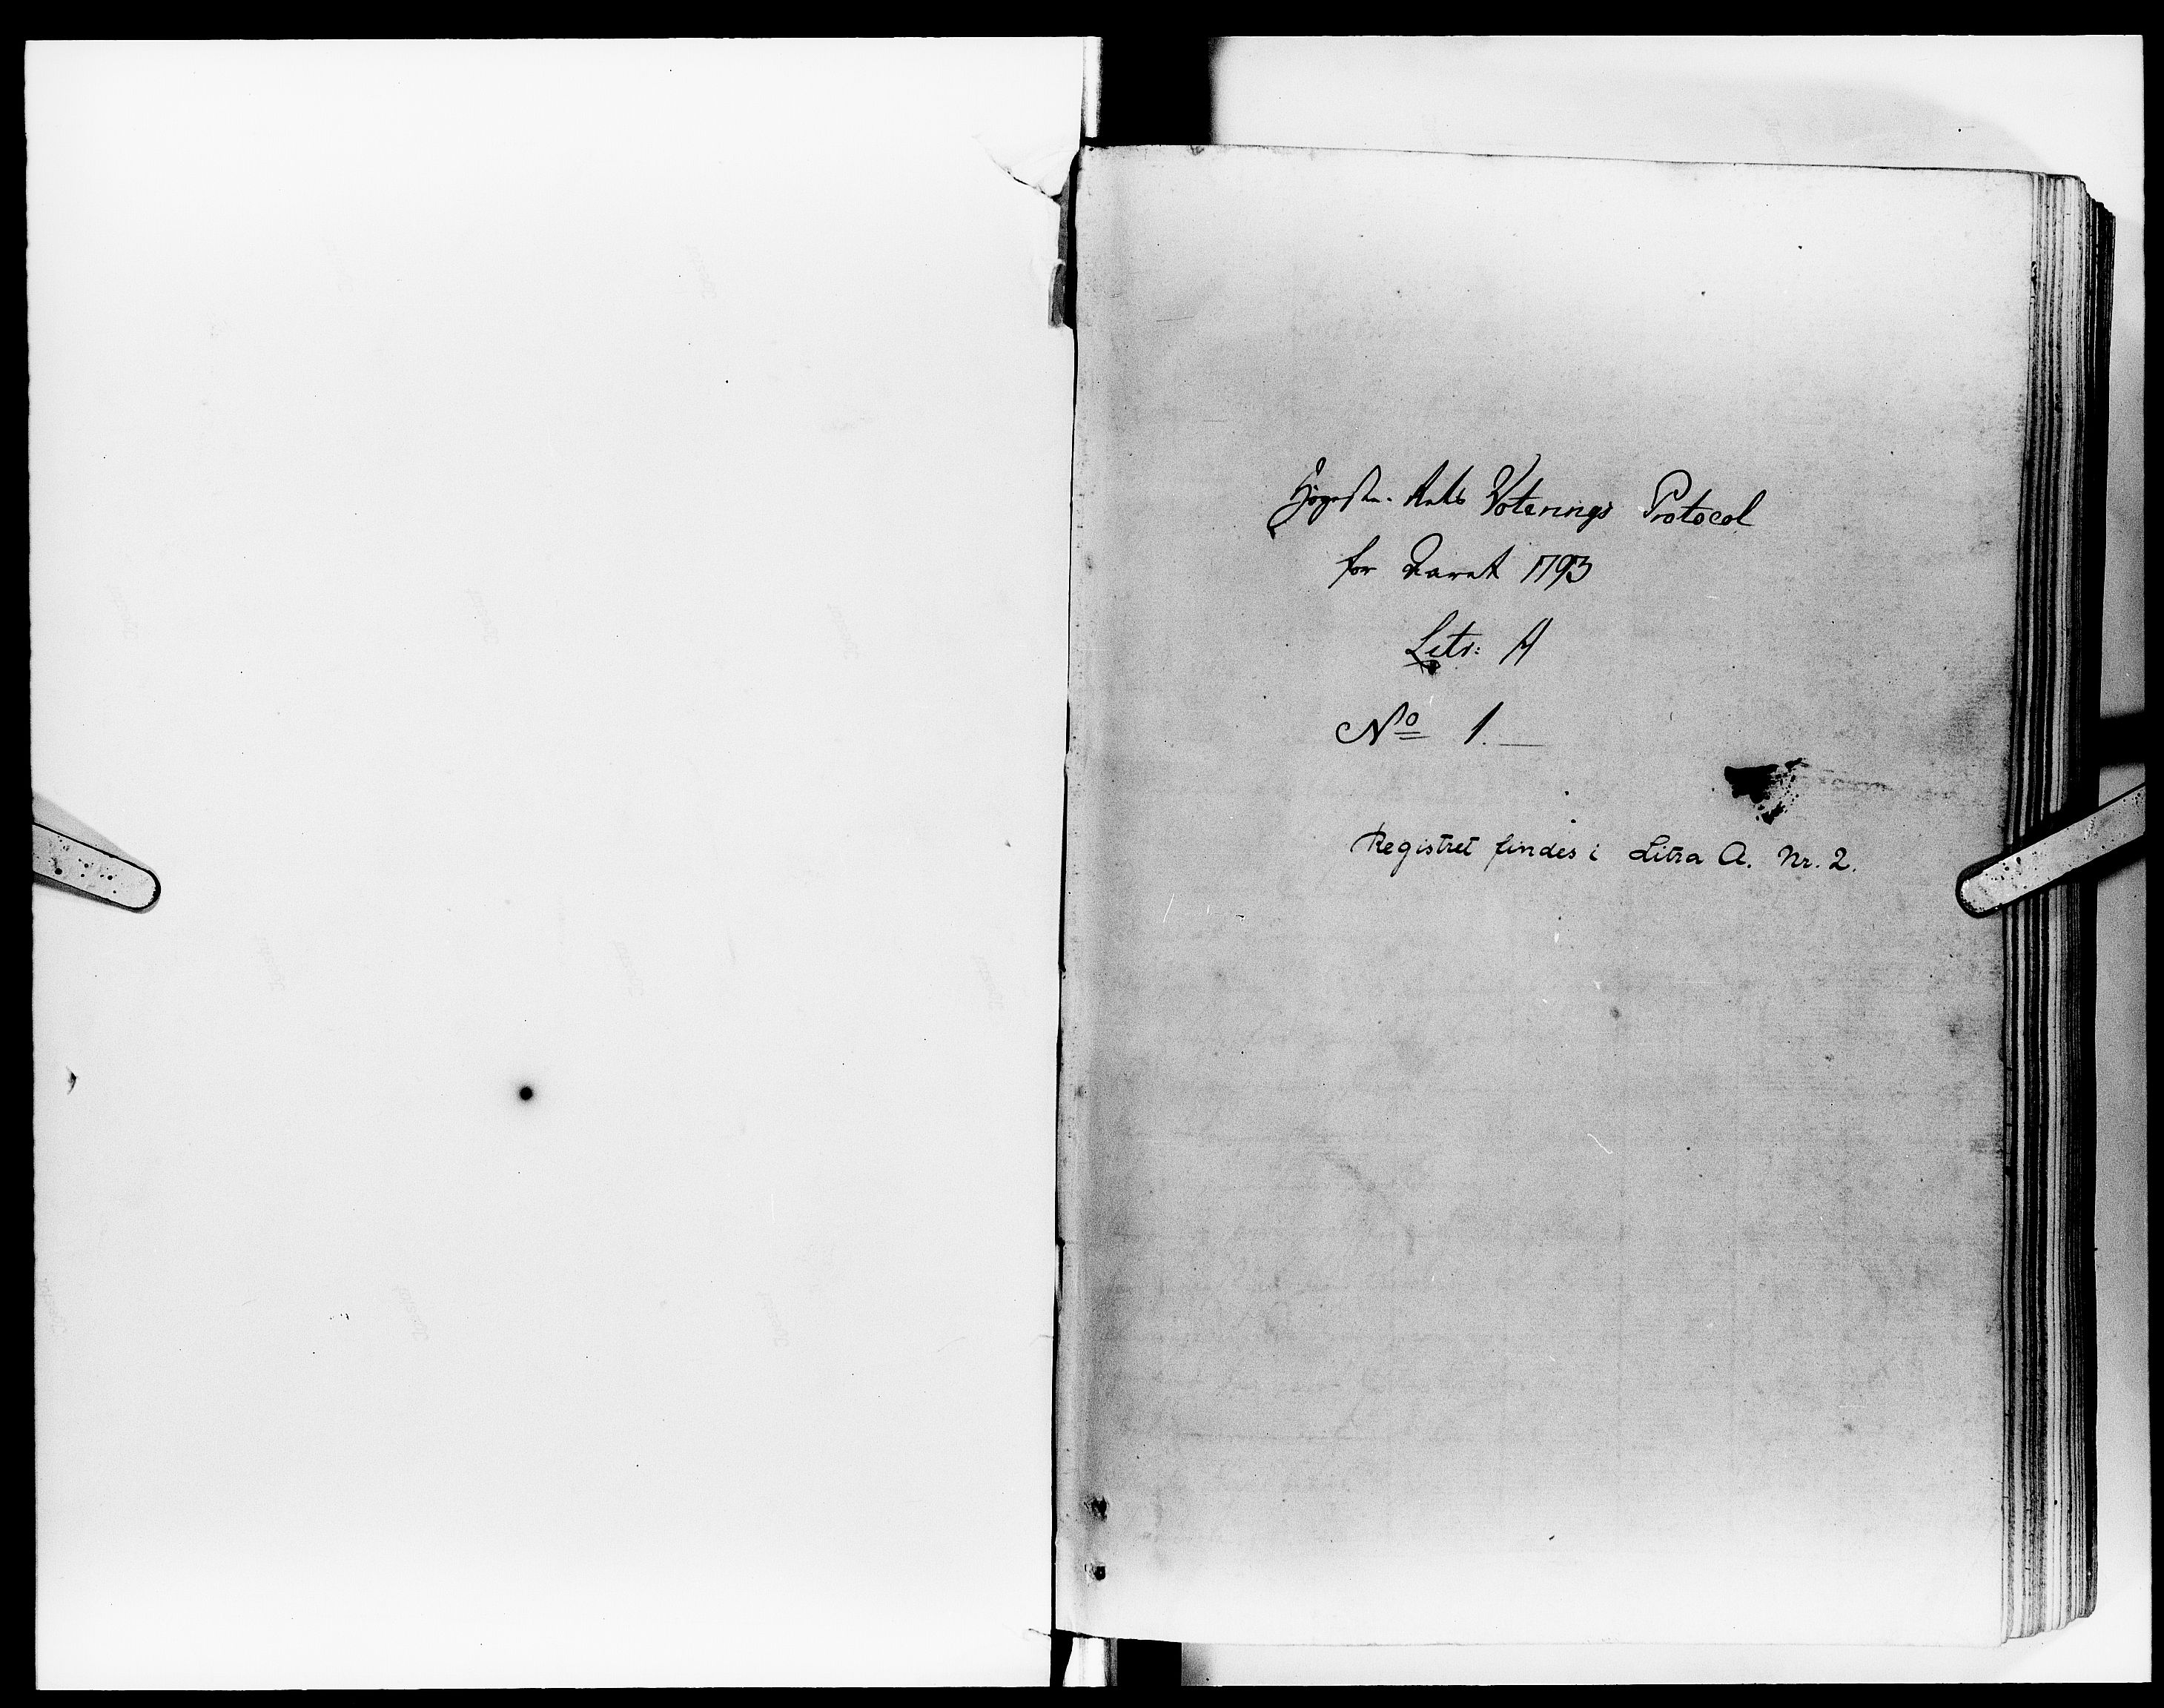 Højeste-Rets Voterings Protocol
for Aaret 1793
Litr: A
No 1.
Registret findes i Litra A. Nr. 2.